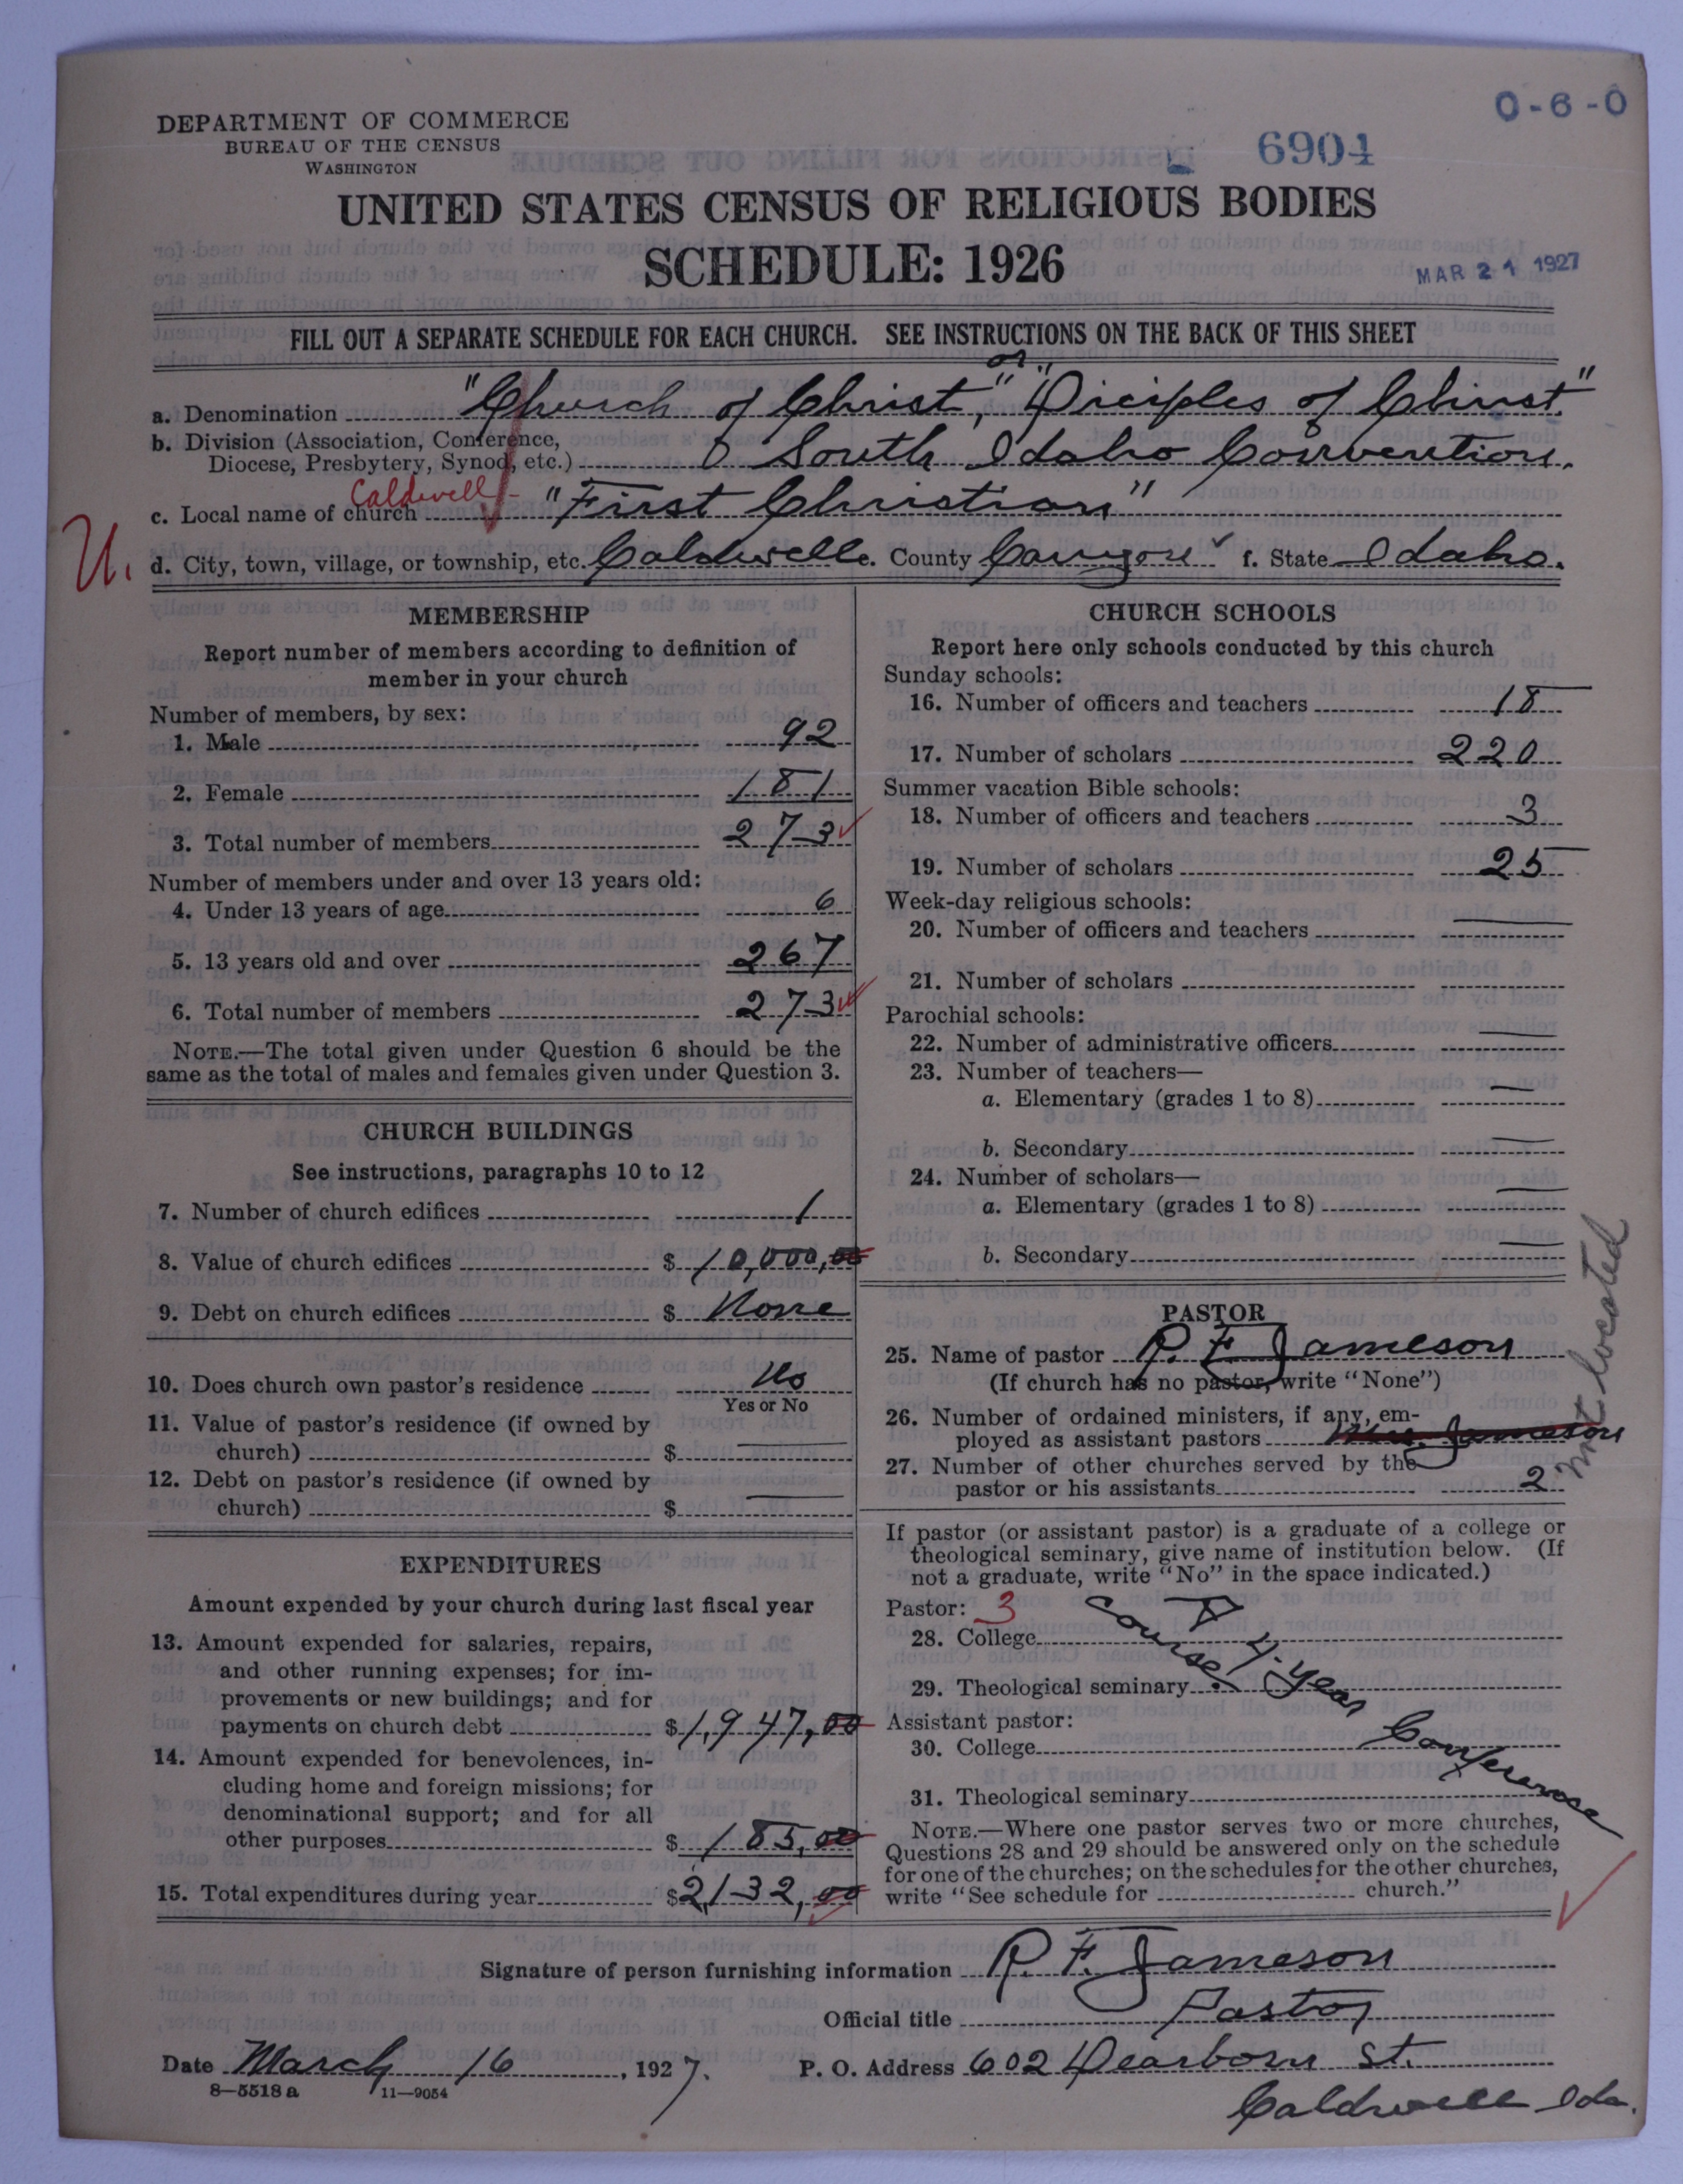 DEPARTMENT OF COMMERCE
BUREAU OF THE CENSUS
WASHINGTON
0-6-0
6904
UNITED STATES CENSUS OF RELIGIOUS BODIES
SCHEDULE: 1926
MAR 21 1927
FILL OUT A SEPARATE SCHEDULE FOR EACH CHURCH. SEE INSTRUCTIONS ON THE BACK OF THIS SHEET
a. Denomination "Church of Christ," or "Diciples of Christ."
b. Division (Association, Conference,
Diocese, Presbytery, Synod, etc.) South Idaho Convention.
Caldwell-
c. Local name of church "First Christian"
U.
d. City, town, village, or township, etc. Caldwell e. County Canyon f. State Idaho.
MEMBERSHIP
Report number of members according to definition of
member in your church
Number of members, by sex:
1. Male 92
2. Female 181
3. Total number of members 273
Number of members under and over 13 years old:
4. Under 13 years of age 6
5. 13 years old and over 267
6. Total number of members 273
NOTE.—The total given under Question 6 should be the
same as the total of males and females given under Question 3.
CHURCH BUILDINGS
See instructions, paragraphs 10 to 12
7. Number of church edifices 1
8. Value of church edifices $ 10,000,00
9. Debt on church edifices $ None
10. Does church own pastor's residence No
Yes or No
11. Value of pastor's residence (if owned by
church) $
12. Debt on pastor's residence (if owned by
church) $
EXPENDITURES
Amount expended by your church during last fiscal year
13. Amount expended for salaries, repairs,
and other running expenses; for im-
provements or new buildings; and for
payments on church debt $ 1,947,00
14. Amount expended for benevolences, in-
cluding home and foreign missions; for
denominational support; and for all
other purposes $ 185,00
15. Total expenditures during year $ 2132,00
CHURCH SCHOOLS
Report here only schools conducted by this church
Sunday schools:
16. Number of officers and teachers 18
17. Number of scholars 220
Summer vacation Bible schools:
18. Number of officers and teachers 3
19. Number of scholars 25
Week-day religious schools:
20. Number of officers and teachers
21. Number of scholars
Parochial schools:
22. Number of administrative officers
23. Number of teachers—
a. Elementary (grades 1 to 8)
b. Secondary
24. Number of scholars—
a. Elementary (grades 1 to 8)
b. Secondary
PASTOR
25. Name of pastor R. F. Jameson
(If church has no pastor, write "None")
26. Number of ordained ministers, if any, em-
ployed as assistant pastors Mrs. Jameson
not located
27. Number of other churches served by the
pastor or his assistants 2
If pastor (or assistant pastor) is a graduate of a college or
theological seminary, give name of institution below. (If
not a graduate, write "No" in the space indicated.)
Pastor: 3
28. College
29. Theological seminary
A 4-year Conference
Course.
Assistant pastor:
30. College
31. Theological seminary
NOTE.—Where one pastor serves two or more churches,
Questions 28 and 29 should be answered only on the schedule
for one of the churches; on the schedules for the other churches,
write "See schedule for church."
Signature of person furnishing information R. F. Jameson
Official title Pastor
Date March 16, 1927. P. O. Address 602 Dearborn St.
8—5518 a 11—9054
Caldwell Ida.